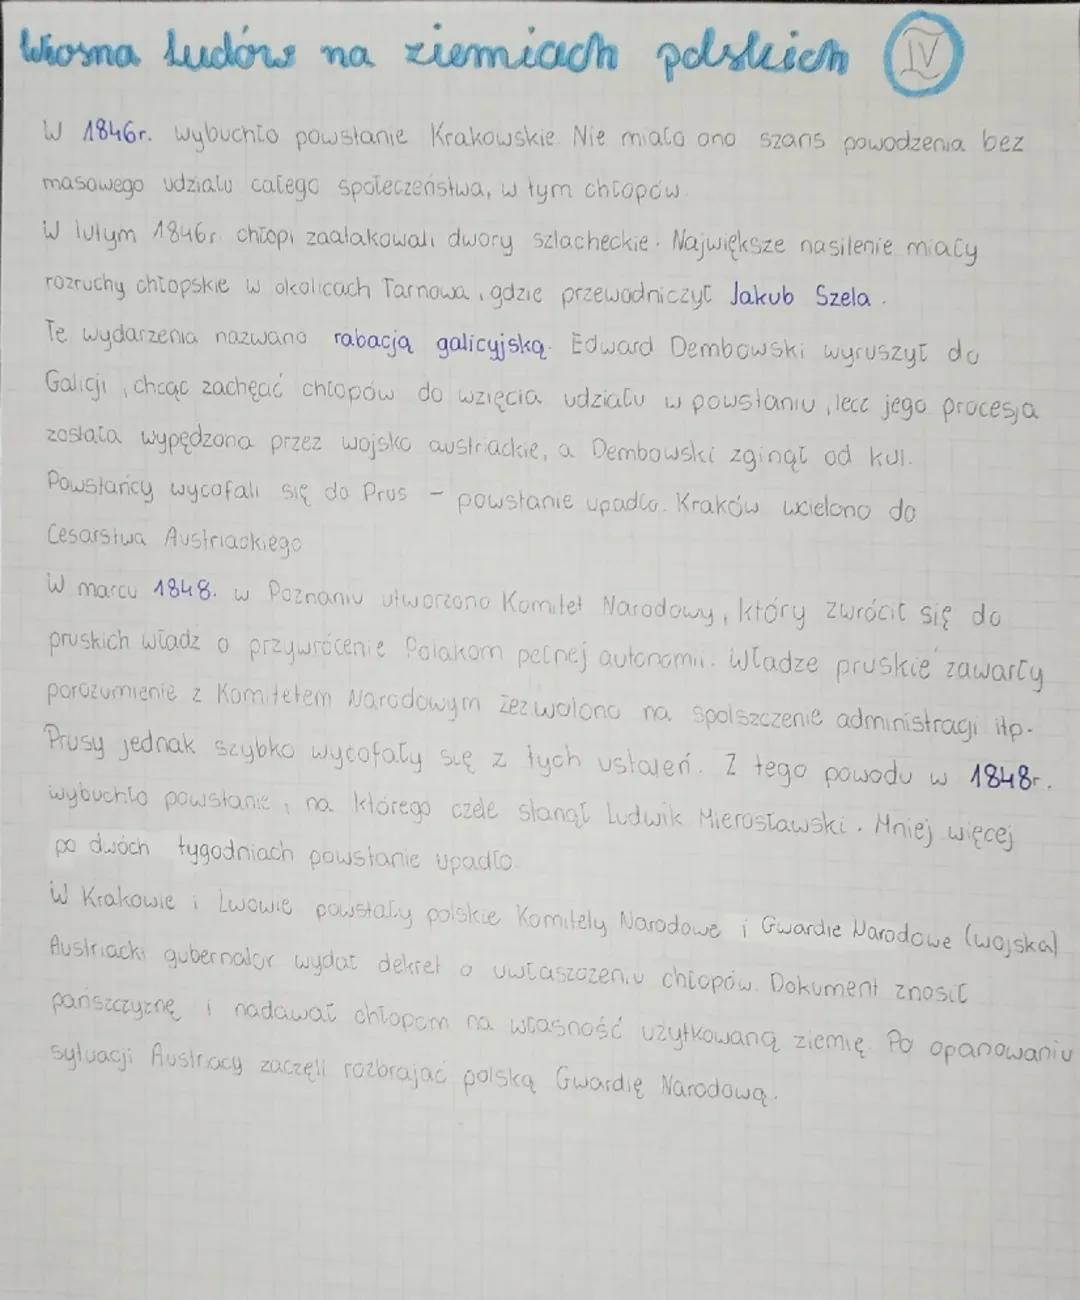 Wiosna Ludów na ziemiach polskich IV
W 1846r. wybuchło powstanie Krakowskie. Nie miało ono szans powodzenia bez
masowego udziału całego społeczeństwa, w tym chłopów.
W lutym 1846r. chłopi zaatakowali dwory szlacheckie. Największe nasilenie miały
rozruchy chłopskie w okolicach Tarnowa, gdzie przewodniczył Jakub Szela.
Te wydarzenia nazwano rabacją galicyjską. Edward Dembowski wyruszył do
Galicji, chcąc zachęcić chłopów do wzięcia udziału w powstaniu, lecz jego procesja
została wypędzona przez wojsko austriackie, a Dembowski zginął od kul.
Powstańcy wycofali się do Prus – powstanie upadło. Kraków wcielono do
Cesarstwa Austriackiego
W marcu 1848. w Poznaniu utworzono Komitet Narodowy, który zwrócił się do
pruskich władz o przywrócenie Polakom pełnej autonomii. Władze pruskie zawarły
porozumienie z Komitetem Narodowym Zezwolono na spolszczenie administracji itp.
Prusy jednak szybko wycofały się z tych ustaleń. Z tego powodu w 1848r.
wybuchło powstanie, na którego czele stanął Ludwik Mierosławski. Mniej więcej
po dwóch tygodniach powstanie upadło.
W Krakowie i Lwowie powstały polskie Komitety Narodowe i Gwardie Narodowe (wojska)
Austriacki gubernator wydał dekret o uwłaszczeniu chłopów. Dokument znosił
pańszczyznę i nadawał chłopom na własność użytkowaną ziemię. Po opanowaniu
sytuacji Austriacy zaczęli rozbrajać polską Gwardię Narodową.